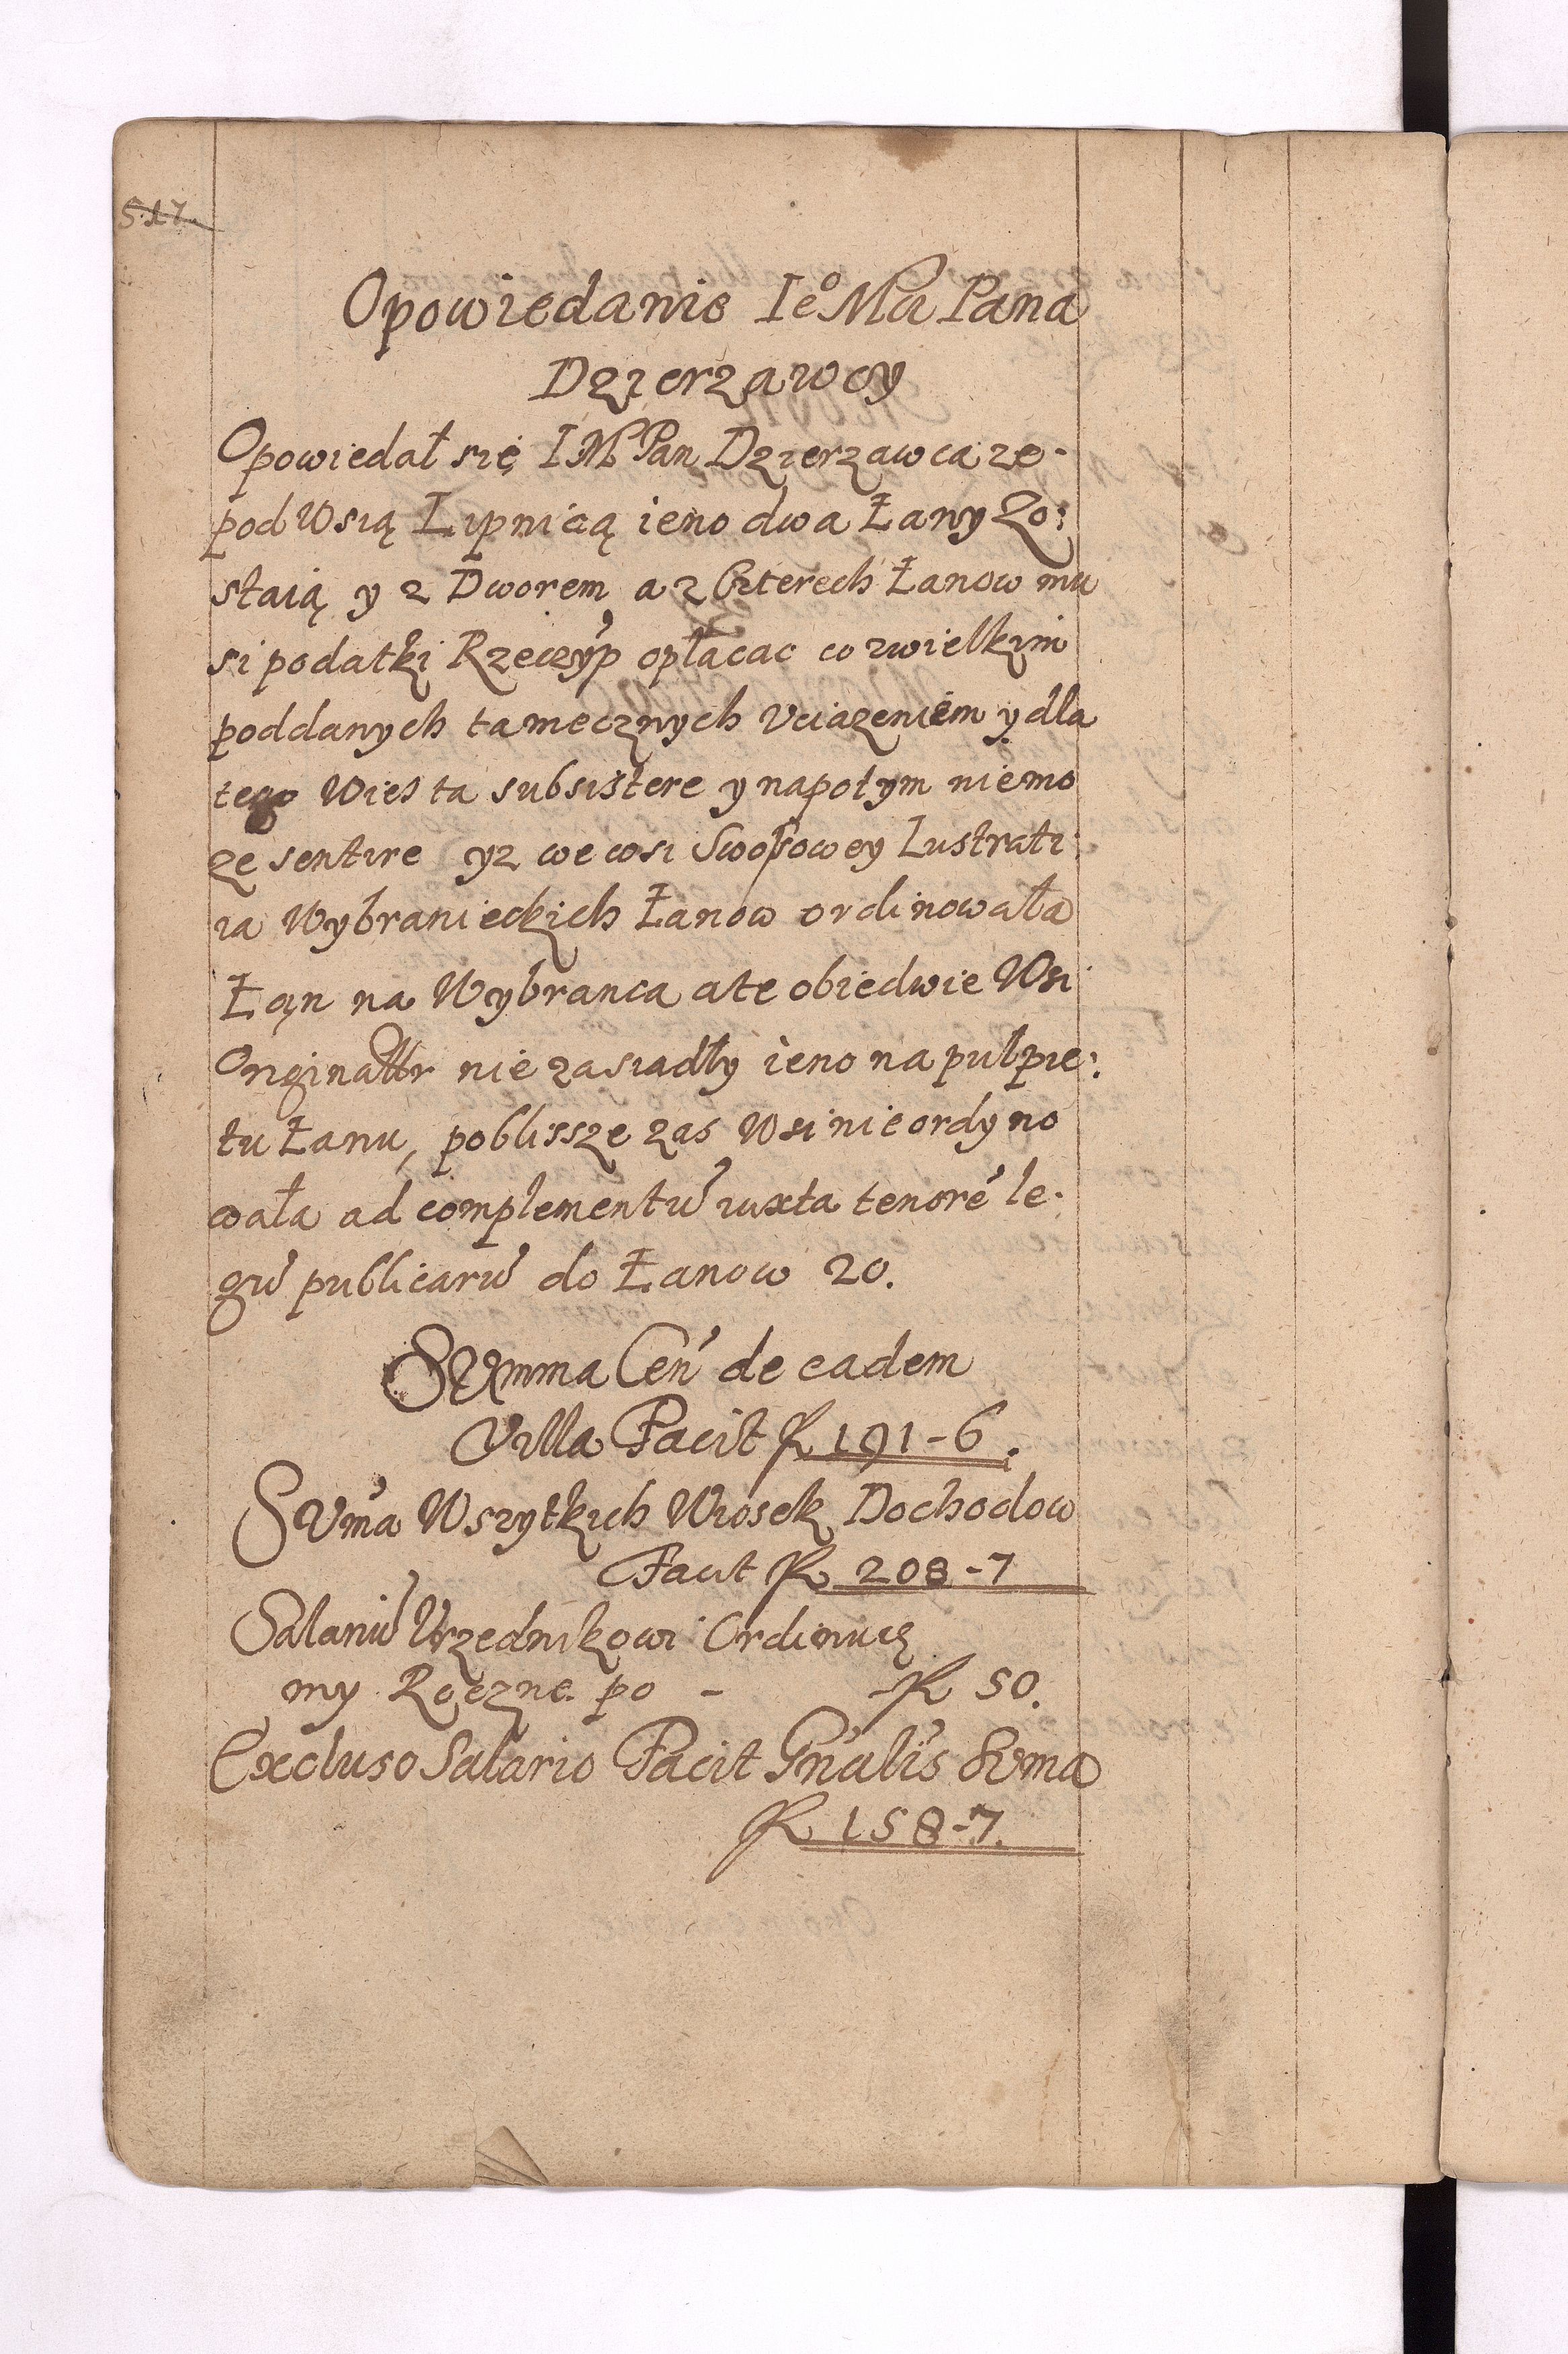 517
Opowiedanie Ie° Ma Pana
Dzierzawcy
Opowiedał się I M Pan Dzierzawca ze-
pod Wsią Lipnicą ieno dwa Łany Zo:
staią y z Dworem a z Czterech Łanow mu
si podatki Rzeczyp opłacac co zwielkim
poddanych tamecznych Uciazeniem y dla
tego Wies ta subsistere y napotym niemo
ze sentire yz we wsi Lustrati:
ia Wybranieckich Łanow ordinowała
Łąn na Wybranca a te obiedwie Wsi
nie zasiadły ieno na pułpie:
tu Łanu, poblissze zas Wsi nie ordyno
wała ad complementu iuxta tenore le-
gu publicaru do Łanow 20.
Summa Cen de eadem
Villa Facit R 191-6.
Suma Wszytkich Wiosek Dochodow
Facit R 208-7
Salariu Urzednikowi Ordinuie
my Roczne po - R 50.
Excluso Salario Facit Gnalis Suma
R 158-7.